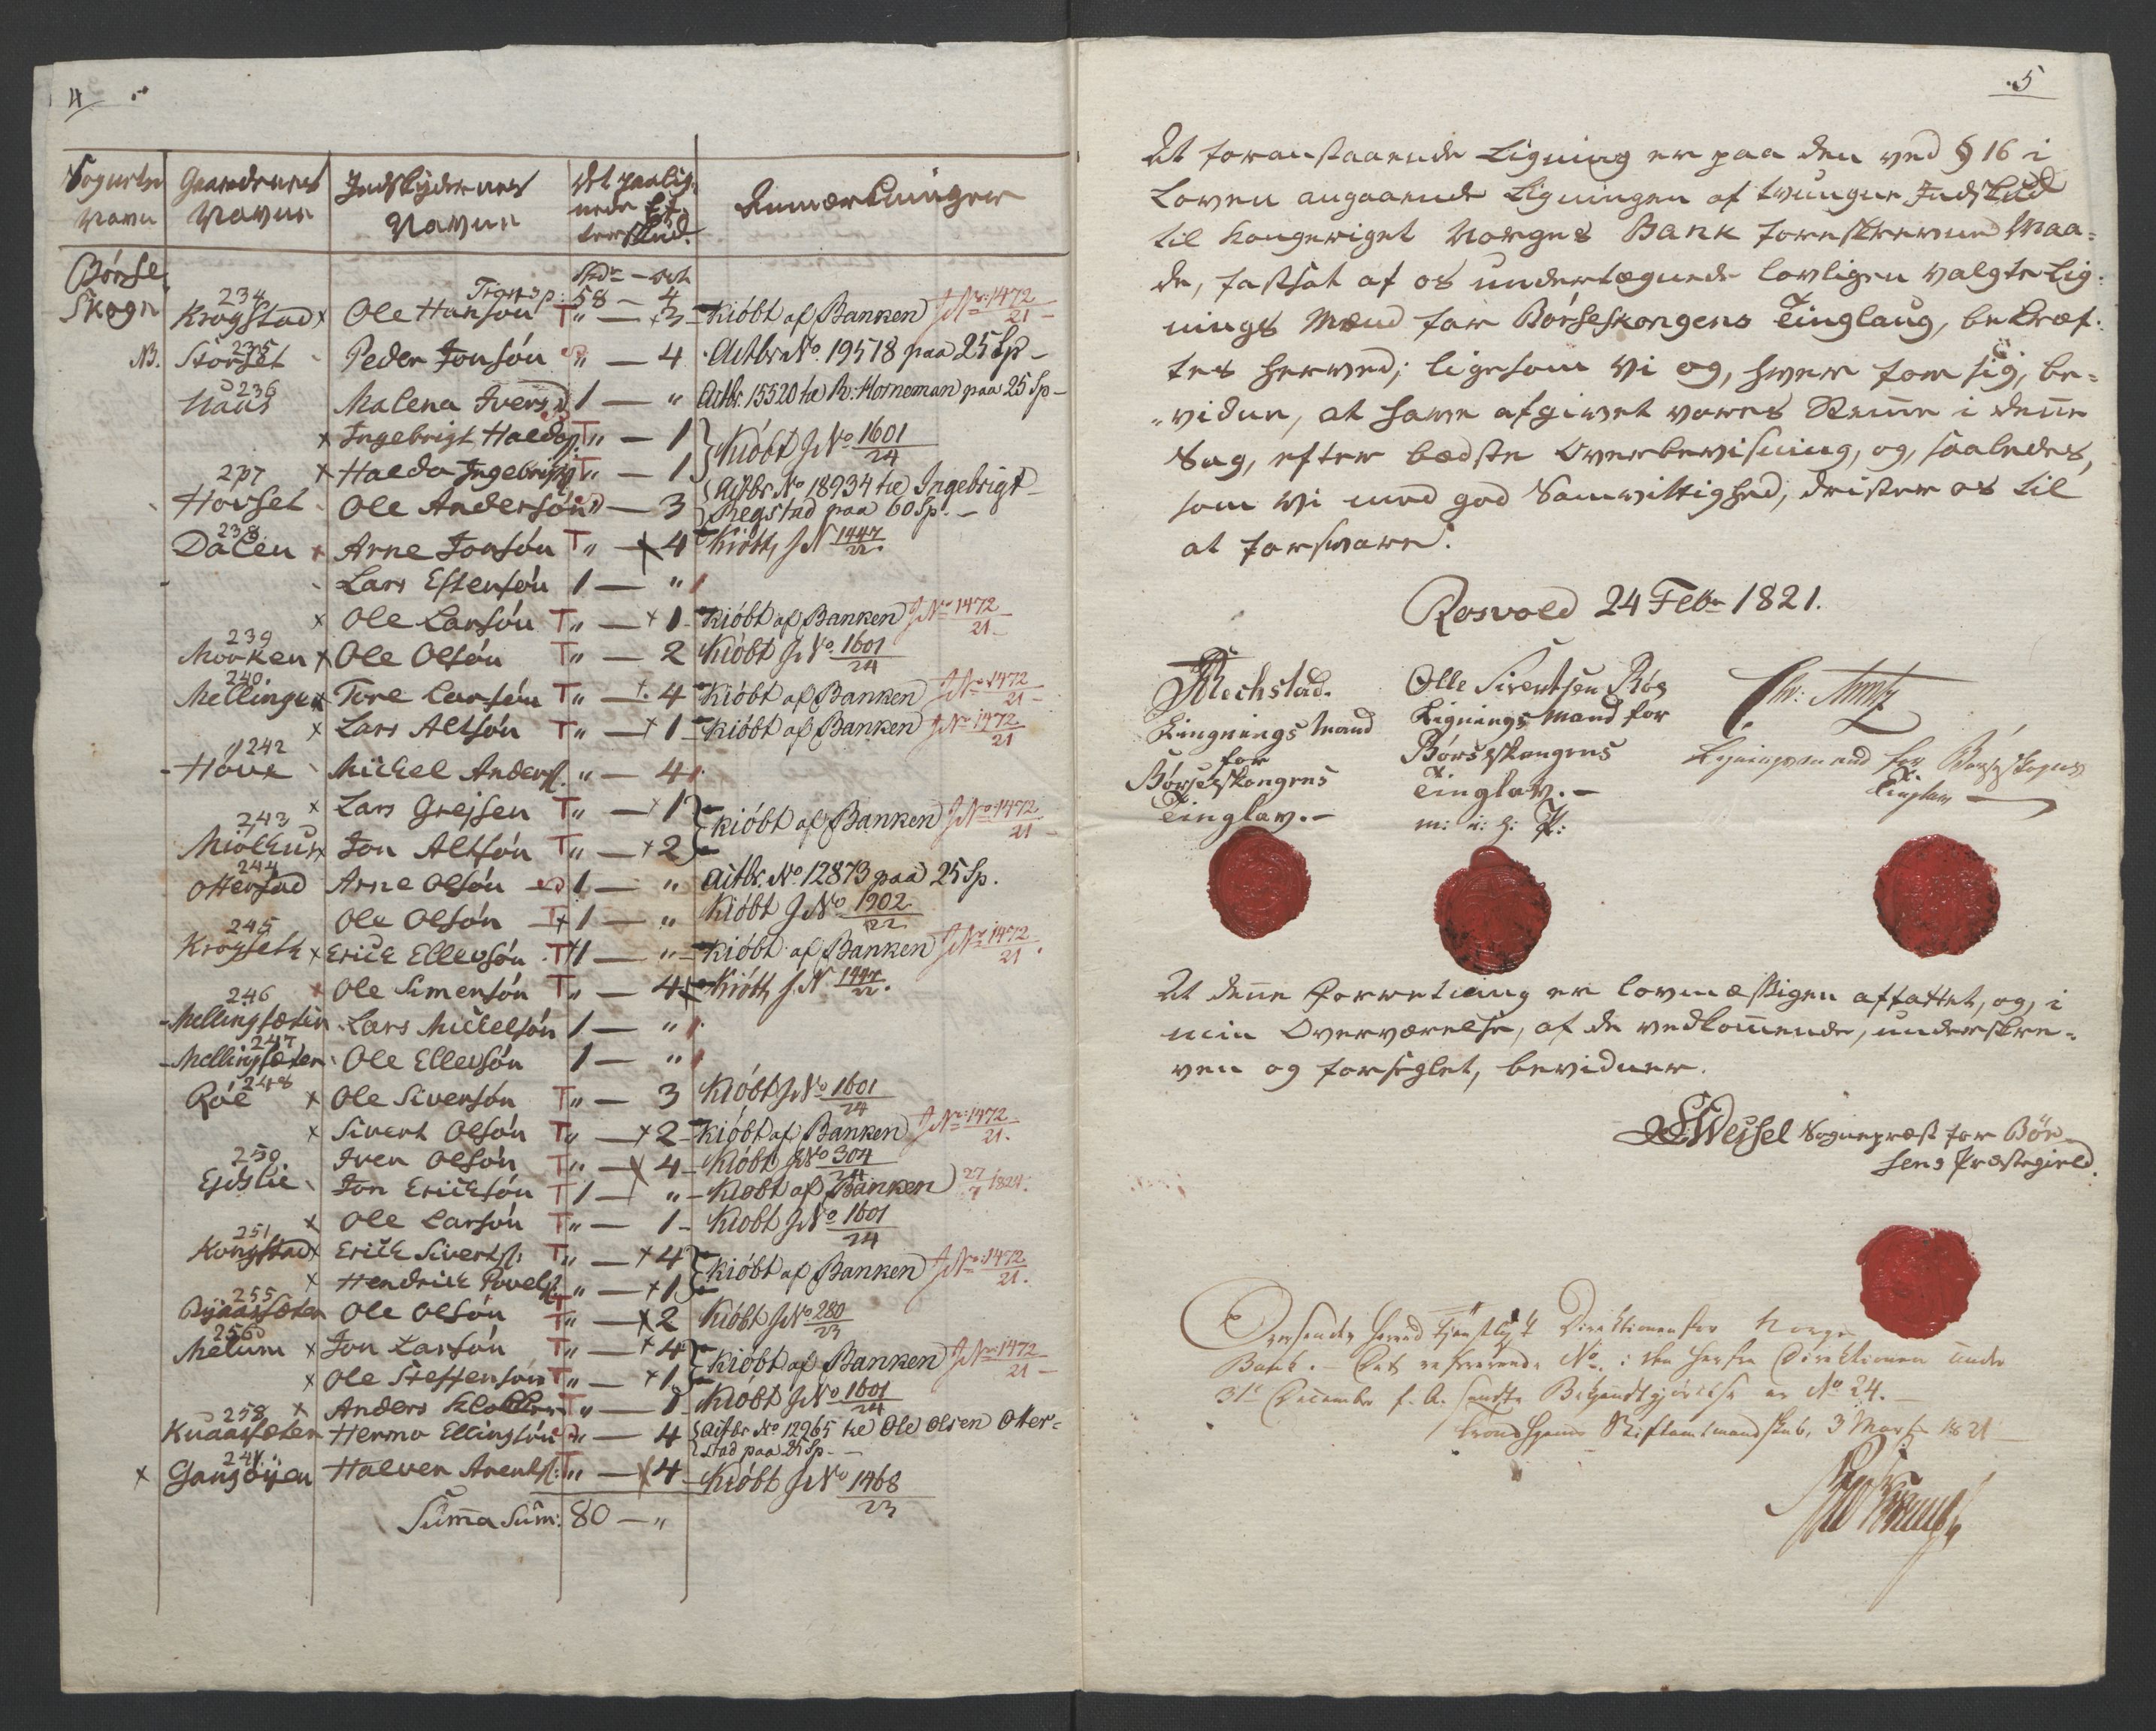 4
Sognets Navn | Gaardenes Navne | Indskydernes Navne | Det paalignede Efterskud. | Anmærkninger
Børse Skogn | Spdr — Ort
Trgnsp: 58 — 4
234 Krogstad x Ole Hansón T " — x 3 Kióbt af Banken J No 1472/21
NB. 235 Storset Peder Jonsón " — 4 Actbr No. 19578 paa 25 Sp
236 Naus Malena Iversd 1 — " Actbr. 15520 til R: Horneman paa 25 Sp
x Ingebrigt Halds. T " — 1 } Kióbt J No 1601/24
x Haldo Ingebrigts T " — 1
237 Horset Ole Andersón " — 3 { Actbr No 18934 til Ingebrigt Regstad paa 60 Sp.
238 Dalen x Arne Jonsón T " — x 4 Kióbt J N 1447/22.
Lars Estensón 1 — "
x Ole Larsón T " — x 1 Kióbt af Banken J No 1472/21
239 Morken x Ole Olsón T " — 2 Kióbt J No. 1601/24
240 Mellingen x Tore Larsón T " — x. 4 Kióbt af Banken J No 1472/21
x Lars Altsón T " — x 1 Kióbt af Banken J No 1472/21
242 Hove Michel Anders. " — 4
x Lars Grejsen T " — x 1 } Kióbt af Banken J No 1472/21
243 Miólhus x Jon Altsón T " — x 2
244 Otterstad Arne Olsón 1 — " Actbr. No. 12873 paa 25 Sp.
Ole Olsón T x 1 — " Kióbt J No 1902/22
245 Krogseth x Erick Ellevsón T x 1 — " Kióbt af Banken J No 1472/21.
x Ole Simensón T " — 4 x Kióbt J. N. 1447/22.
246 Mellingsætin Lars Mickelsón 1 — "
247 Mellingsæten Ole Ellevsón 1 — "
248 Róe x Ole Siversón T " — 3 Kióbt J No 1601/24
x Sivert Olsón T " — x 2 Kióbt af Banken J No 1472/21.
Iver Olsón T " — x 4 Kióbt J No 304/24
250 Ejdslie Jon Ericksón T 1 — " Kióbt af Banken 27/7 1824.
x Ole Larsón T " — 1 Kióbt J No 1601/24
251 Kongstad x Erick Siverts: T " — x 4 } Kióbt af Banken J No 1472/21.
x Hendrick Povels. T " — x 1
255 Byaassæten Ole Olsón T " — x 2 Kióbt J No 280/23
256 Melum x Jon Larsón T " — x 4 } Kióbt af Banken J No 1472/21
x Ole Steffensón T " — x 1
x Anders Klokker T " — 1 Kióbt J No 1601/24
258 Kuaassæten Hermo Ellingsón " — 4 { Actbr No 12965 til Ole Olsen Otterstad paa 25 Sp.
x 241 Gangóyen Halver Arents: T " — x 4 Kióbt J No 1468/23
Suma Sum: 80 — "
5
At foranstaaende Ligning er paa den ved § 16 i
Loven angaaende Ligningen af tvungne Indskud
til Kongeriget Norges Bank foreskrevne Maa=
de, fastsat af os undertegnede lovligen valgte Lig=
nings Mænd for Børseskongens Tinglaug, bekræf=
tes herved; ligesom vi og, hver for sig, be=
vidne, at have afgivet vores Stemme i denne
Sag, efter bedste Overbevisning, og, saaledes,
som vi med god Samvittighed, drister os til
at forsvare.
Rosvold 24 Febr 1821.
Rechstad.
Lingnings Mand
for
Børseskongens
Tinglav.
Olle Siventsen Róe
Lignings Mand for
Børseskongens
Tinglav.
m: i: h: P:
Chr:
Ligningsmand for Børseskogns
Tinglav
At denne Forretning er lovmæssigen affattet, og, i
min Overværelse, af de vedkommende, underskre=
ven og forseglet, bevidner.
Wessel Sognepræst for Bör=
sens Præstegield.
Oversendes herved tjenstligst Direktionen for Norges
Bank. — Dets refererende No. i den herfra Direktionen under
31te December f. A. sendte Bekjendtgjörelse er No 24.
Trondhjems Stiftamtmandskab, 3 Marts 1821